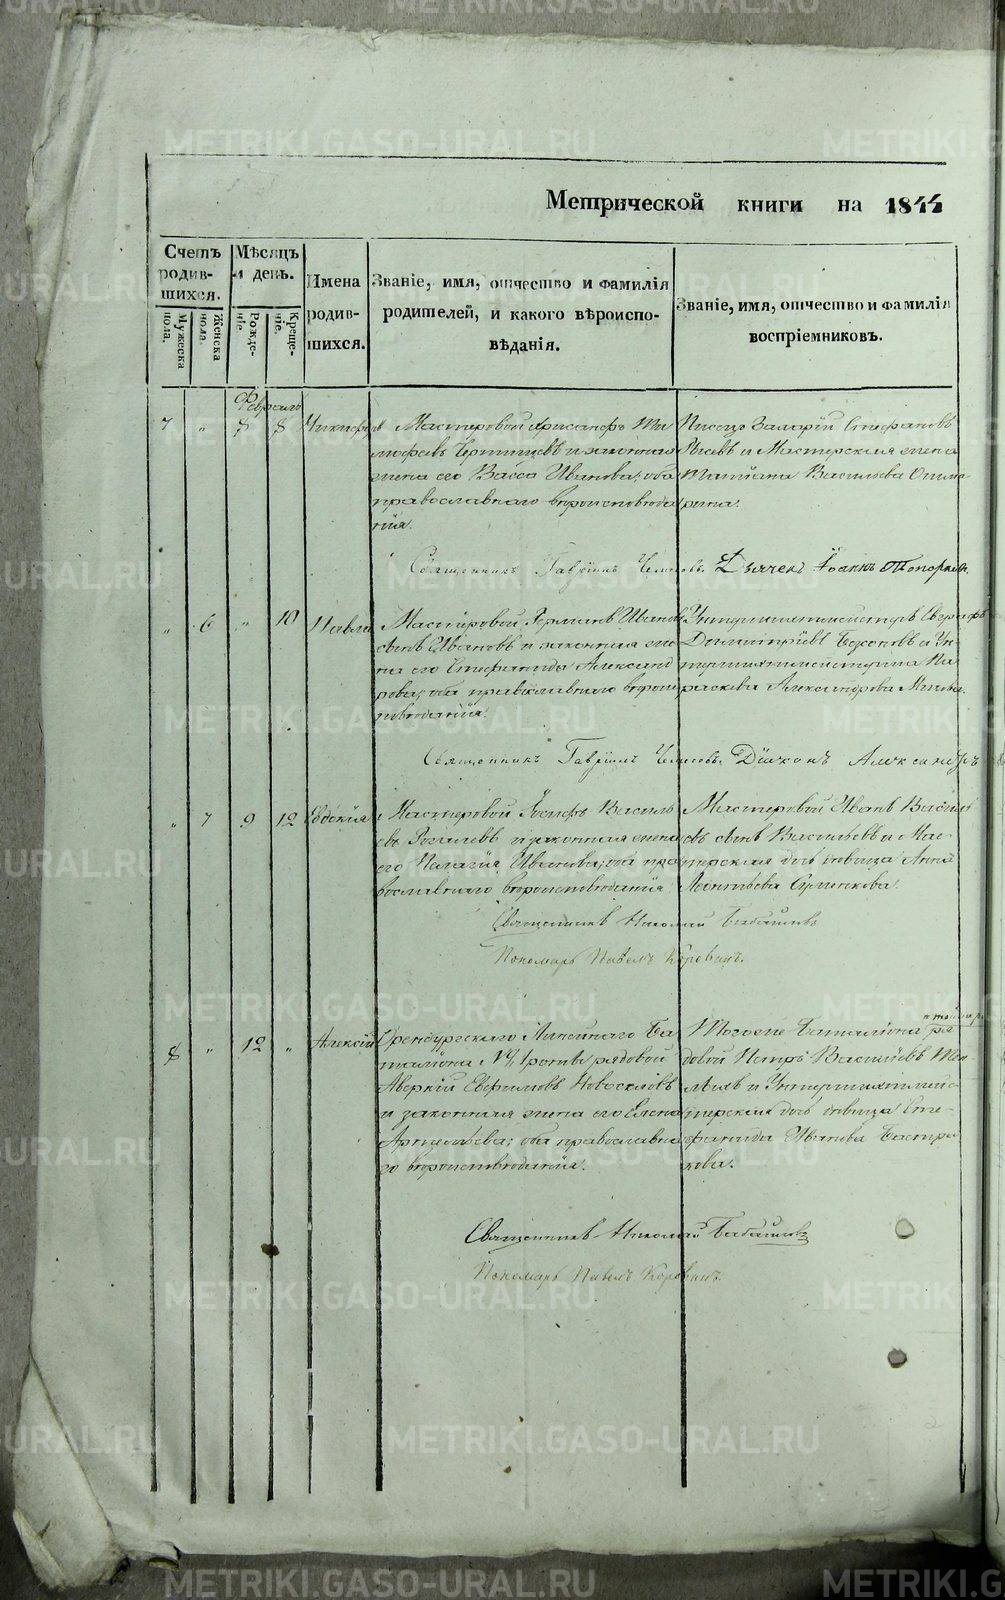 METRIKI.GASO-URAL.RU
Метрической книги на 1844
Счетъ родившихся.
Мужеска пола.
Женска пола.
Мѣсяцъ и день.
Рожденіе.
Крещеніе.
Имена родившихся.
Званіе, имя, отчество и фамилія
родителей, и какого вѣроиспо-
вѣданія.
Званіе, имя, отчество и фамилія
воспріемниковъ.
Февраль
7 " 8 8 Никифоръ
Мастеровой Хрисанфъ Ти
мофеевъ и законная
жена его Васса Иванова; оба
православнаго вероисповеда
нія.
Писецъ Стефановъ
и Мастерская жена
Татіана Васильева
Священникъ Гавріилъ Дьячекъ Іоаннъ Топорковъ.
" 6 " 10 Павла
Мастеровой Германъ Иванов
сынъ Ивановъ и законная же
на его Стефанида Александ
рова; оба православнаго вероис
поведанія.
Унтершихтмейстеръ Евграфъ
Димитріевъ и Ун-
тершихтмейстерша Па
раскева Александрова
Священникъ Гавріилъ Діаконъ Александръ
" 7 9 12 Евдокія
Мастеровой Іосифъ Василь
евъ и законная жена
его Пелагія Иванова; оба пра
вославнаго вероисповеданія
Мастеровой Иванъ Василь
евъ сынъ Васильевъ и Мас-
терская дочь девица Анна
Леонтьева
Священникъ Николай Бабановъ
Пономарь Павелъ Коровинъ.
8 " 12 " Алексій
Оренбургскаго Линейнаго Ба
таліона № роты рядовой
Аверкій Евфимовъ Новоселовъ
и законная жена его Елена
оба православна
го вероисповеданія.
Тогоже Баталіона ря
довой Петръ Васильевъ
и Унтершихтмейс-
терская дочь девица Сте-
фанида Иванова Бастри
кова.
Священникъ Николай Бабановъ
Пономарь Павелъ Коровинъ.